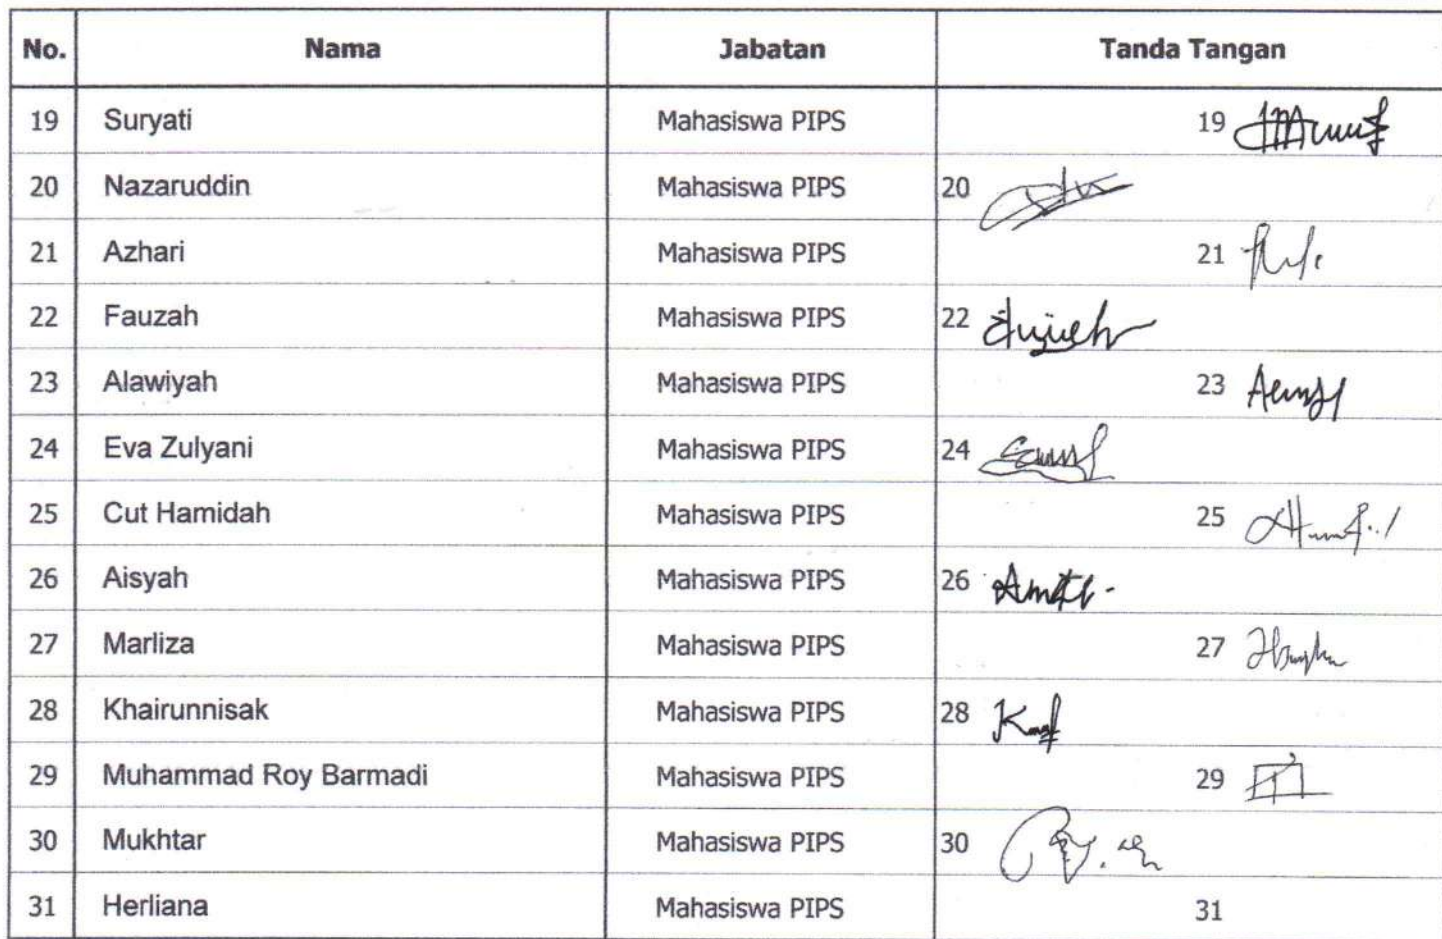 No. Nama Jabatan Tanda Tangan
19 Suryati Mahasiswa PIPS 19
20 Nazaruddin Mahasiswa PIPS 20
21 Azhari Mahasiswa PIPS 21
22 Fauzah Mahasiswa PIPS 22
23 Alawiyah Mahasiswa PIPS 23
24 Eva Zulyani Mahasiswa PIPS 24
25 Cut Hamidah Mahasiswa PIPS 25
26 Aisyah Mahasiswa PIPS 26
27 Marliza Mahasiswa PIPS 27
28 Khairunnisak Mahasiswa PIPS 28
29 Muhammad Roy Barmadi Mahasiswa PIPS 29
30 Mukhtar Mahasiswa PIPS 30
31 Herliana Mahasiswa PIPS 31